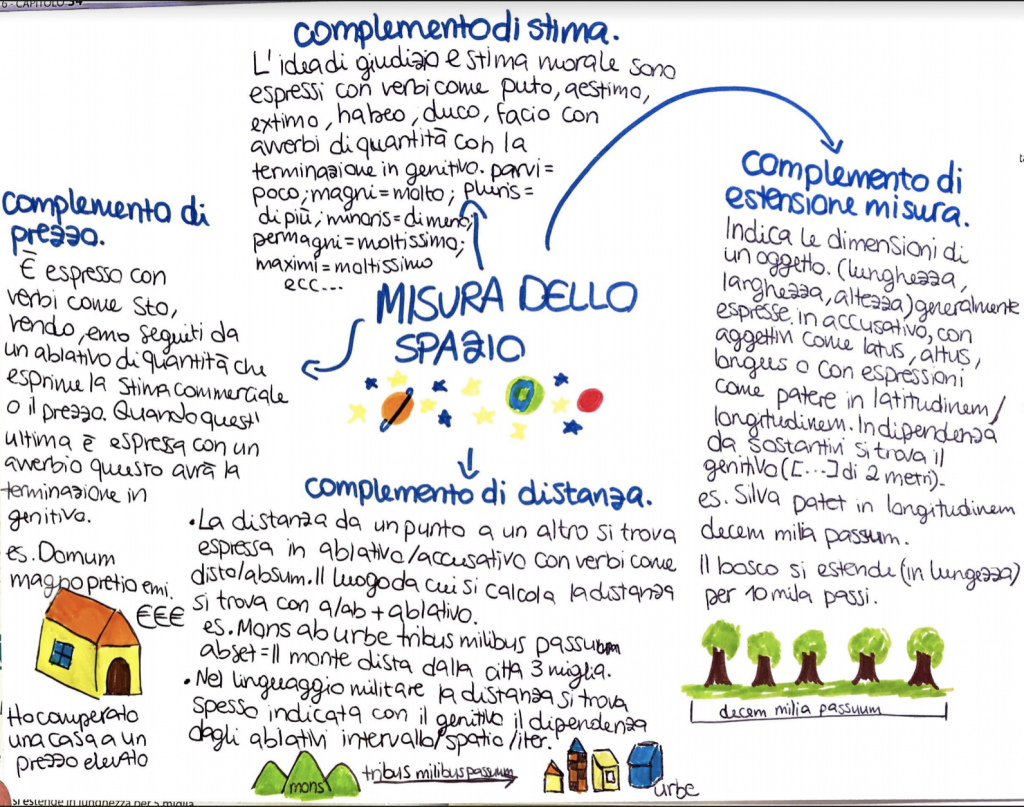 6 - CAPITOLO 34
complemento di stima.
L'idea di giudizio e stima morale sono
espressi con verbi come puto, aestimo,
extimo, habeo, duco, facio con
avverbi di quantità con la
terminazione in genitivo. parvi=
poco; magni=molto; pluris=
di più; minoris=di meno;
permagni=moltissimo;
maximi=moltissimo
ecc...
complemento di
prezzo.
È espresso con
verbi come sto,
vendo, emo seguiti da
un ablativo di quantità che
esprime la stima commerciale
o il prezzo. Quando quest'
ultima è espressa con un
avverbio questo avrà la
terminazione in
genitivo.
es. Domum
magno pretio emi.
€€€
Ho comperato
una casa a un
prezzo elevato
MISURA DELLO
SPAZIO
complemento di
estensione misura.
Indica le dimensioni di
un oggetto. (lunghezza,
larghezza, altezza) generalmente
espresse in accusativo, con
aggettivi come latus, altus,
longus o con espressioni
come patere in latitudinem/
longitudinem. In dipendenza
da sostantivi si trova il
genitivo ([...] di 2 metri).
es. Silva patet in longitudinem
decem milia passum.
Il bosco si estende (in lungezza)
per 10 mila passi.
decem milia passuum
complemento di distanza.
•La distanza da un punto a un altro si trova
espressa in ablativo/accusativo con verbi come
disto/absum. Il luogo da cui si calcola la distanza
si trova con a/ab + ablativo.
es. Mons ab urbe tribus milibus passuum
abset=Il monte dista dalla città 3 miglia.
•Nel linguaggio militare la distanza si trova
spesso indicata con il genitivo il dipendenza
dagli ablativi intervallo/spatio/iter.
mons
tribus milibus passuum
urbe
si estende in lunghezza per 5 miglia